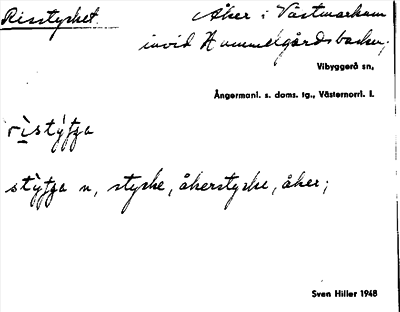 Risstycket.
Åker i Västmarkum
invid Hummelgårdsbacken;
Vibyggerå sn,
Ångermanl. s. doms. tg., Västernorrl. l.
stycke, åkerstycke, åker;
Sven Hiller 1948